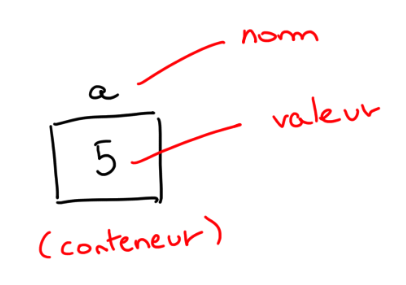 nom
a
valeur
5
(conteneur)